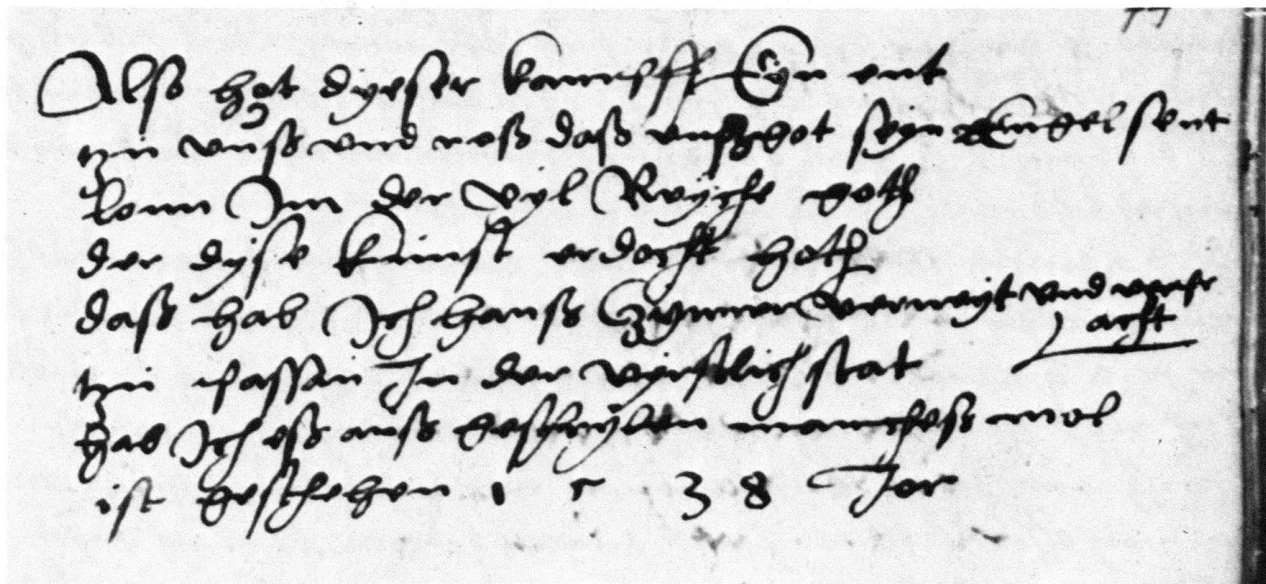 Alß hot dyeser kampff Eyn ent
tzu unß und roß daß unß got seyn Engel sent
lonn Im der vyl Reyche goth
der dyse kunst erdocht hoth
daß hab Ich hanß Czynner verneyt und
acht
tzu passau In der vyrstlich stat
hab Ich eß auß geschryben mancheß mol
ist geschehen 1 5 3 8 Jor